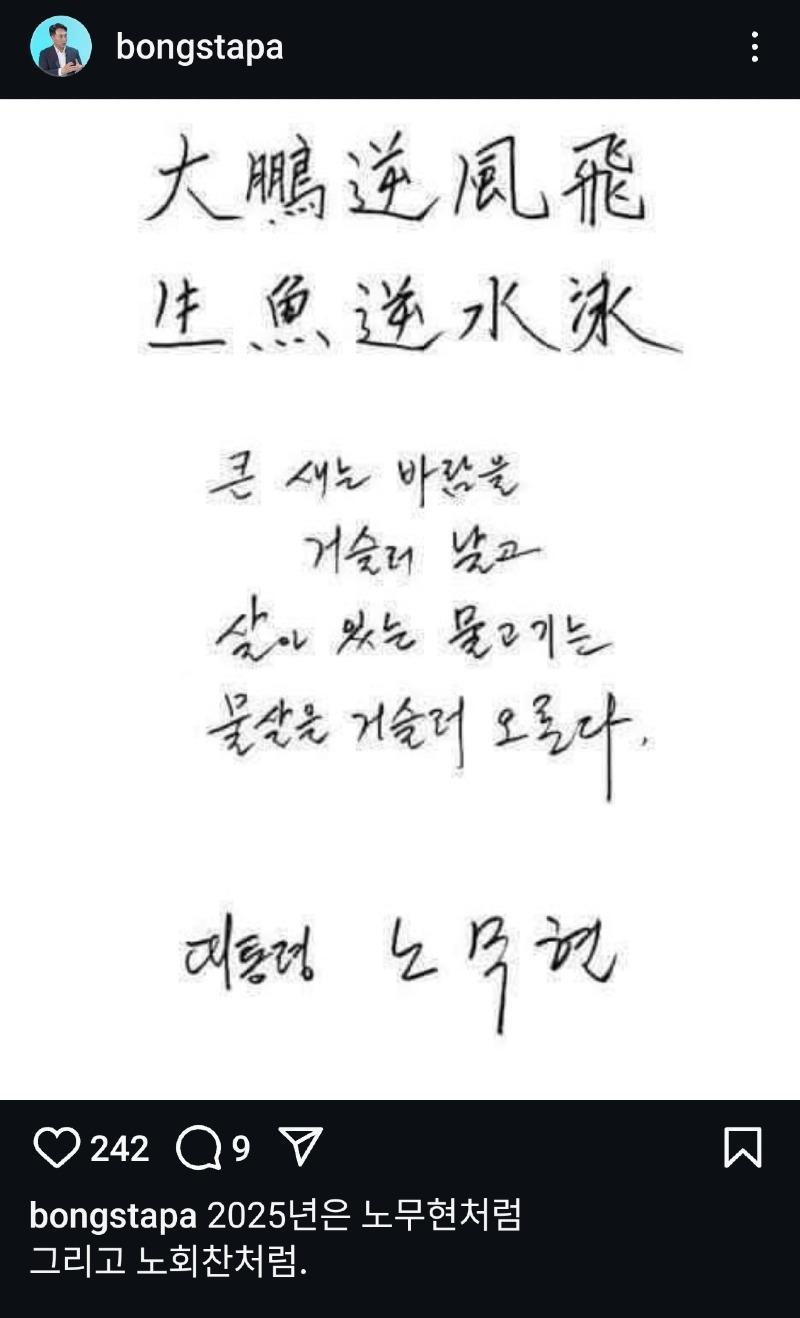 bongstapa
大鵬逆風飛
生魚逆水泳
큰 새는 바람을
거슬러 날고
살아 있는 물고기는
물살을 거슬러 오른다.
대통령 노무현
242 9
bongstapa 2025년은 노무현처럼
그리고 노회찬처럼.